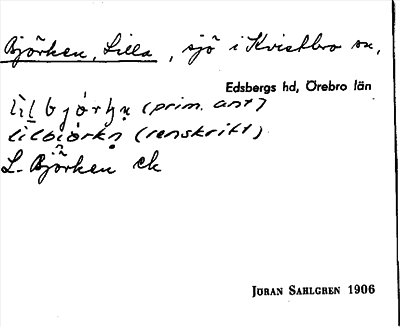 Björken, Lilla, sjö i Kvistbro sn,
Edsbergs hd, Örebro län
(prim. ant)
(renskrift)
L. Björken ek
JÖRAN SAHLGREN 1906